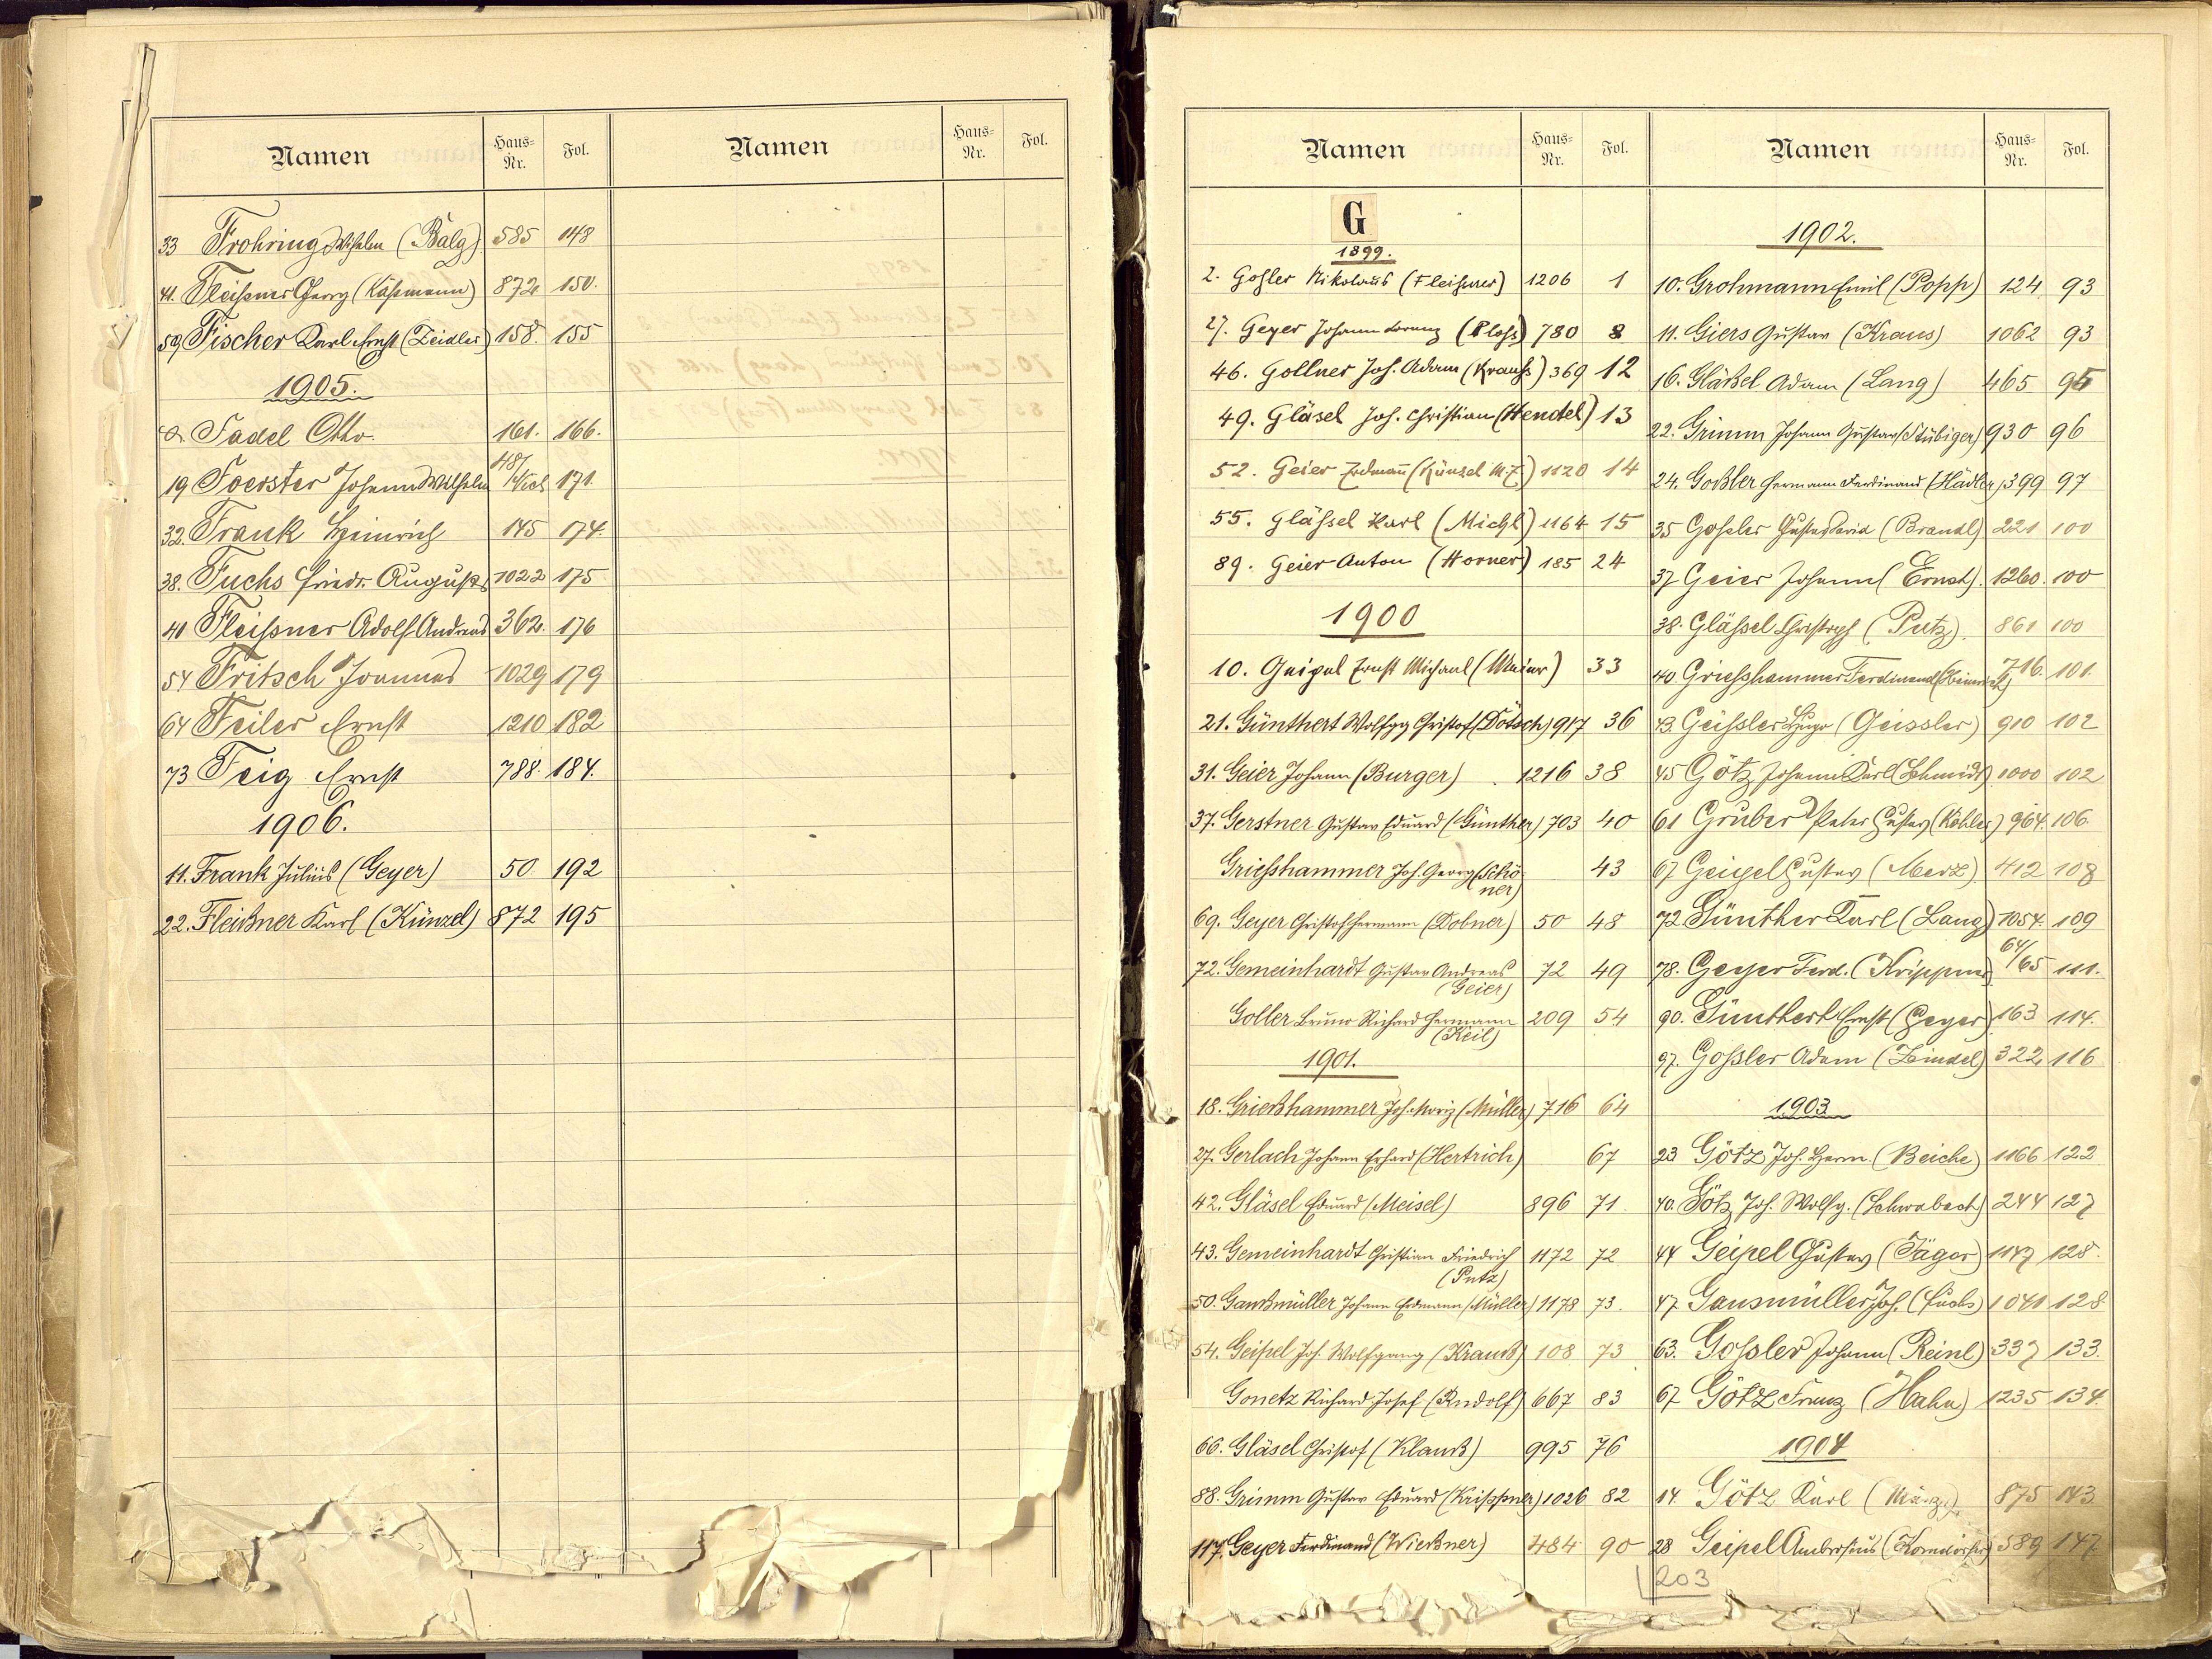 Namen Haus-Nr. Fol. Namen Haus-Nr. Fol.
33 Frohring Wilhelm (Balg) 585 148
41. Fleißner Georg (Käßmann) 872 150.
59 Fischer Karl Ernst (Zeidler) 158. 155
1905.
8. Fadel Otto. 161. 166.
19 Foerster Johann Wilhelm 48/ 171.
32. Frank Heinrich 145 174.
38. Fuchs Friedr. August 1022 175
40 Fleißner Adolf Andreas 362. 176
54 Fritsch Johannes 1029 179
64 Feiler Ernst 1210 182
73 Feig Ernst 788. 184.
1906.
11. Frank Julius (Geyer) 50 192
22. Fleißner Karl (Künzel) 872 195
Namen Haus-Nr. Fol.
G
1899.
2. Goßler Nikolaus (Fleißner) 1206 1
27. Geyer Johann Lorenz (Ploss) 780 8
46. Gollner Joh. Adam (Krauß) 369 12
49. Gläsel Joh. Christian (Hendel) 13
52. Geier Erdmann (Künzel M. Z.) 1120 14
55. Gläßel Karl (Michl) 1164 15
89. Geier Anton (Horner) 185 24
1900
10. Geigel Ernst Michael (Meier) 33
21. Günthert Wolfgg Christof (Dötsch) 917 36
31. Geier Johann (Burger) 1216 38
37. Gerstner Gustav Eduard (Günther) 703 40
Griesshammer Joh. Georg (Schöner) 43
69. Geyer Christof Hermann (Dobner) 50 48
72. Gemeinhardt Gustav Andreas (Geier) 72 49
Goller Bruno Richard Hermann (Keil) 209 54
1901.
18. Grießhammer Joh. Moriz (Müller) 716 64
27. Gerlach Johann Erhard (Hertrich) 67
42. Gläsel Eduard (Meisel) 896 71.
43. Gemeinhardt Christian Friedrich (Putz) 1172 72
50. Gansmüller Johann Erdmann (Müller) 1178 73.
54. Geipel Joh. Wolfgang (Krauß) 108 73
Gonetz Richard Josef (Rudolf) 667 83
66. Gläsel Christof (Klauß) 995 76
88. Grimm Gustav Eduard (Krippner) 1026 82
117. Geyer Ferdinand (Wießner) 484 90
Namen Haus-Nr. Fol.
1902.
10. Grohmann Emil (Popp) 124 93
11. Giers Gustav (Kraus) 1062 93
16. Gläßel Adam (Lang) 465 95
22. Grimm Johann Gustav (Stübiger) 930 96
24. Goßler Hermann Ferdinand (Hädler) 399 97
35 Gossler Gustav David (Brandl) 221 100
37 Geier Johann (Ernst). 1260. 100
38. Gläßel Christoph (Putz). 861 100
40 Griesshammer Ferdinand (Heinrich) 716. 101.
43. Geissler Hugo (Geissler) 910 102
45 Götz Johann Karl (Schmidt) 1000 102
61 Gruber Peter Gustav (Köhler) 964. 106.
67 Geigel Gustav (Merz) 412 108
72. Günther Karl (Lang) 1054. 109
78. Geyer Ferd. (Krippner) 64/65 111.
90. Günthert Ernst (Geyer) 163 114.
97. Gossler Adam (Zeindel) 322 116
1903
23 Götz Joh. Herm. (Beiche) 1166 122
40. Götz Joh. Wolfg. (Schwabach) 244 127
44 Geipel Gustav (Jäger) 1147 128.
47 Gansmüller Joh. (Fuchs) 1041 128
63. Gossler Johann (Reinl) 337 133.
67 Götz Franz (Hahn) 1235 134.
1904
14. Götz Karl (März). 875 143.
28 Geipel Ambrosius (Korndörfer) 589 147
203